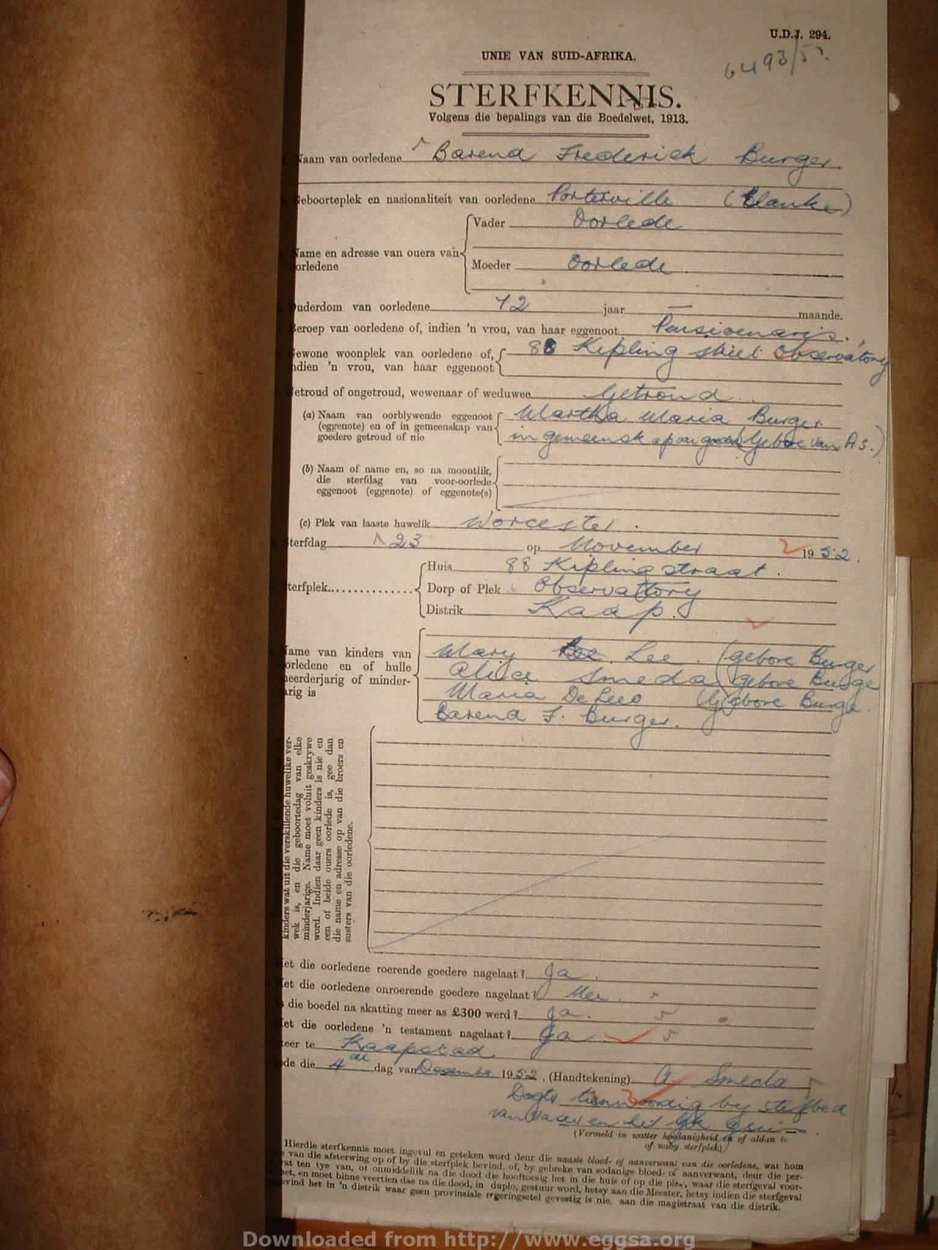 U.D.J. 294.
6493/52.
UNIE VAN SUID-AFRIKA.
STERFKENNIS.
Volgens die bepalings van die Boedelwet, 1913.
Naam van oorledene Barend Frederick Burger
eboorteplek en nasionaliteit van oorledene Porterville (Blanke)
Vader Oorlede
Name en adresse van ouers van
orledene
Moeder Oorlede
uderdom van oorledene 72 jaar — maande.
eroep van oorledene of, indien 'n vrou, van haar eggenoot Pensioenaris.
ewone woonplek van oorledene of, 88 Kipling street Observatory
ndien 'n vrou, van haar eggenoot
etroud of ongetroud, wewenaar of weduwee Getroud
(a) Naam van oorblywende eggenoot Martha Maria Burger
(eggenote) en of in gemeenskap van
goedere getroud of nie in gemeenskap van goedere (Gebore van As.)
(b) Naam of name en, so na moontlik,
die sterfdag van voor-oorlede
eggenoot (eggenote) of eggenote(s)
(c) Plek van laaste huwelik Worcester.
terfdag 23 op November 1952.
Huis 88 Kipling straat.
terfplek Dorp of Plek Observatory
Distrik Kaap.
Name van kinders van
orledene en of hulle
eerderjarig of minder-
arig is
Mary Lee. (gebore Burger
Alice Smeda (gebore Burge
Maria De Leeo (gebore Burge.
Barend F. Burger.
kinders wat uit die verskillende huwelike ver-
wek is, en die geboortedag van elke
minderjarige. Name moet voluit geskrywe
word. Indien daar geen kinders is nie en
een of beide ouers oorlede is, gee dan
die name en adresse op van die broers en
susters van die oorledene.
et die oorledene roerende goedere nagelaat? Ja.
et die oorledene onroerende goedere nagelaat? Nee.
s die boedel na skatting meer as £300 werd? Ja.
et die oorledene 'n testament nagelaat? Ja
teer te Kaapstad
de die 4de dag van Desember 1952. (Handtekening) A. Smeda
Dogter teenwoordig by sterfbed
van vader en het lyk
(Vermeld in watter hoedanigheid en of aldan is
of naby sterfplek)
Hierdie sterfkennis moet ingevul en geteken word deur die naaste bloed- of aanverwant van die oorledene, wat hom
van die afsterwing op of by die sterfplek bevind, of, by gebreke van sodanige bloed- of aanverwant, deur die per-
wat ten tye van, of onmiddellik na die dood die hooftoesig het in die huis of op die plek, waar die sterfgeval voor-
et, en moet binne veertien dae na die dood, in duplo, gestuur word, hetsy aan die Meester, hetsy indien die sterfgeval
evind het in 'n distrik waar geen provinsiale regeringsetel gevestig is nie, aan die magistraat van die distrik.
Downloaded from http://www.eggsa.org